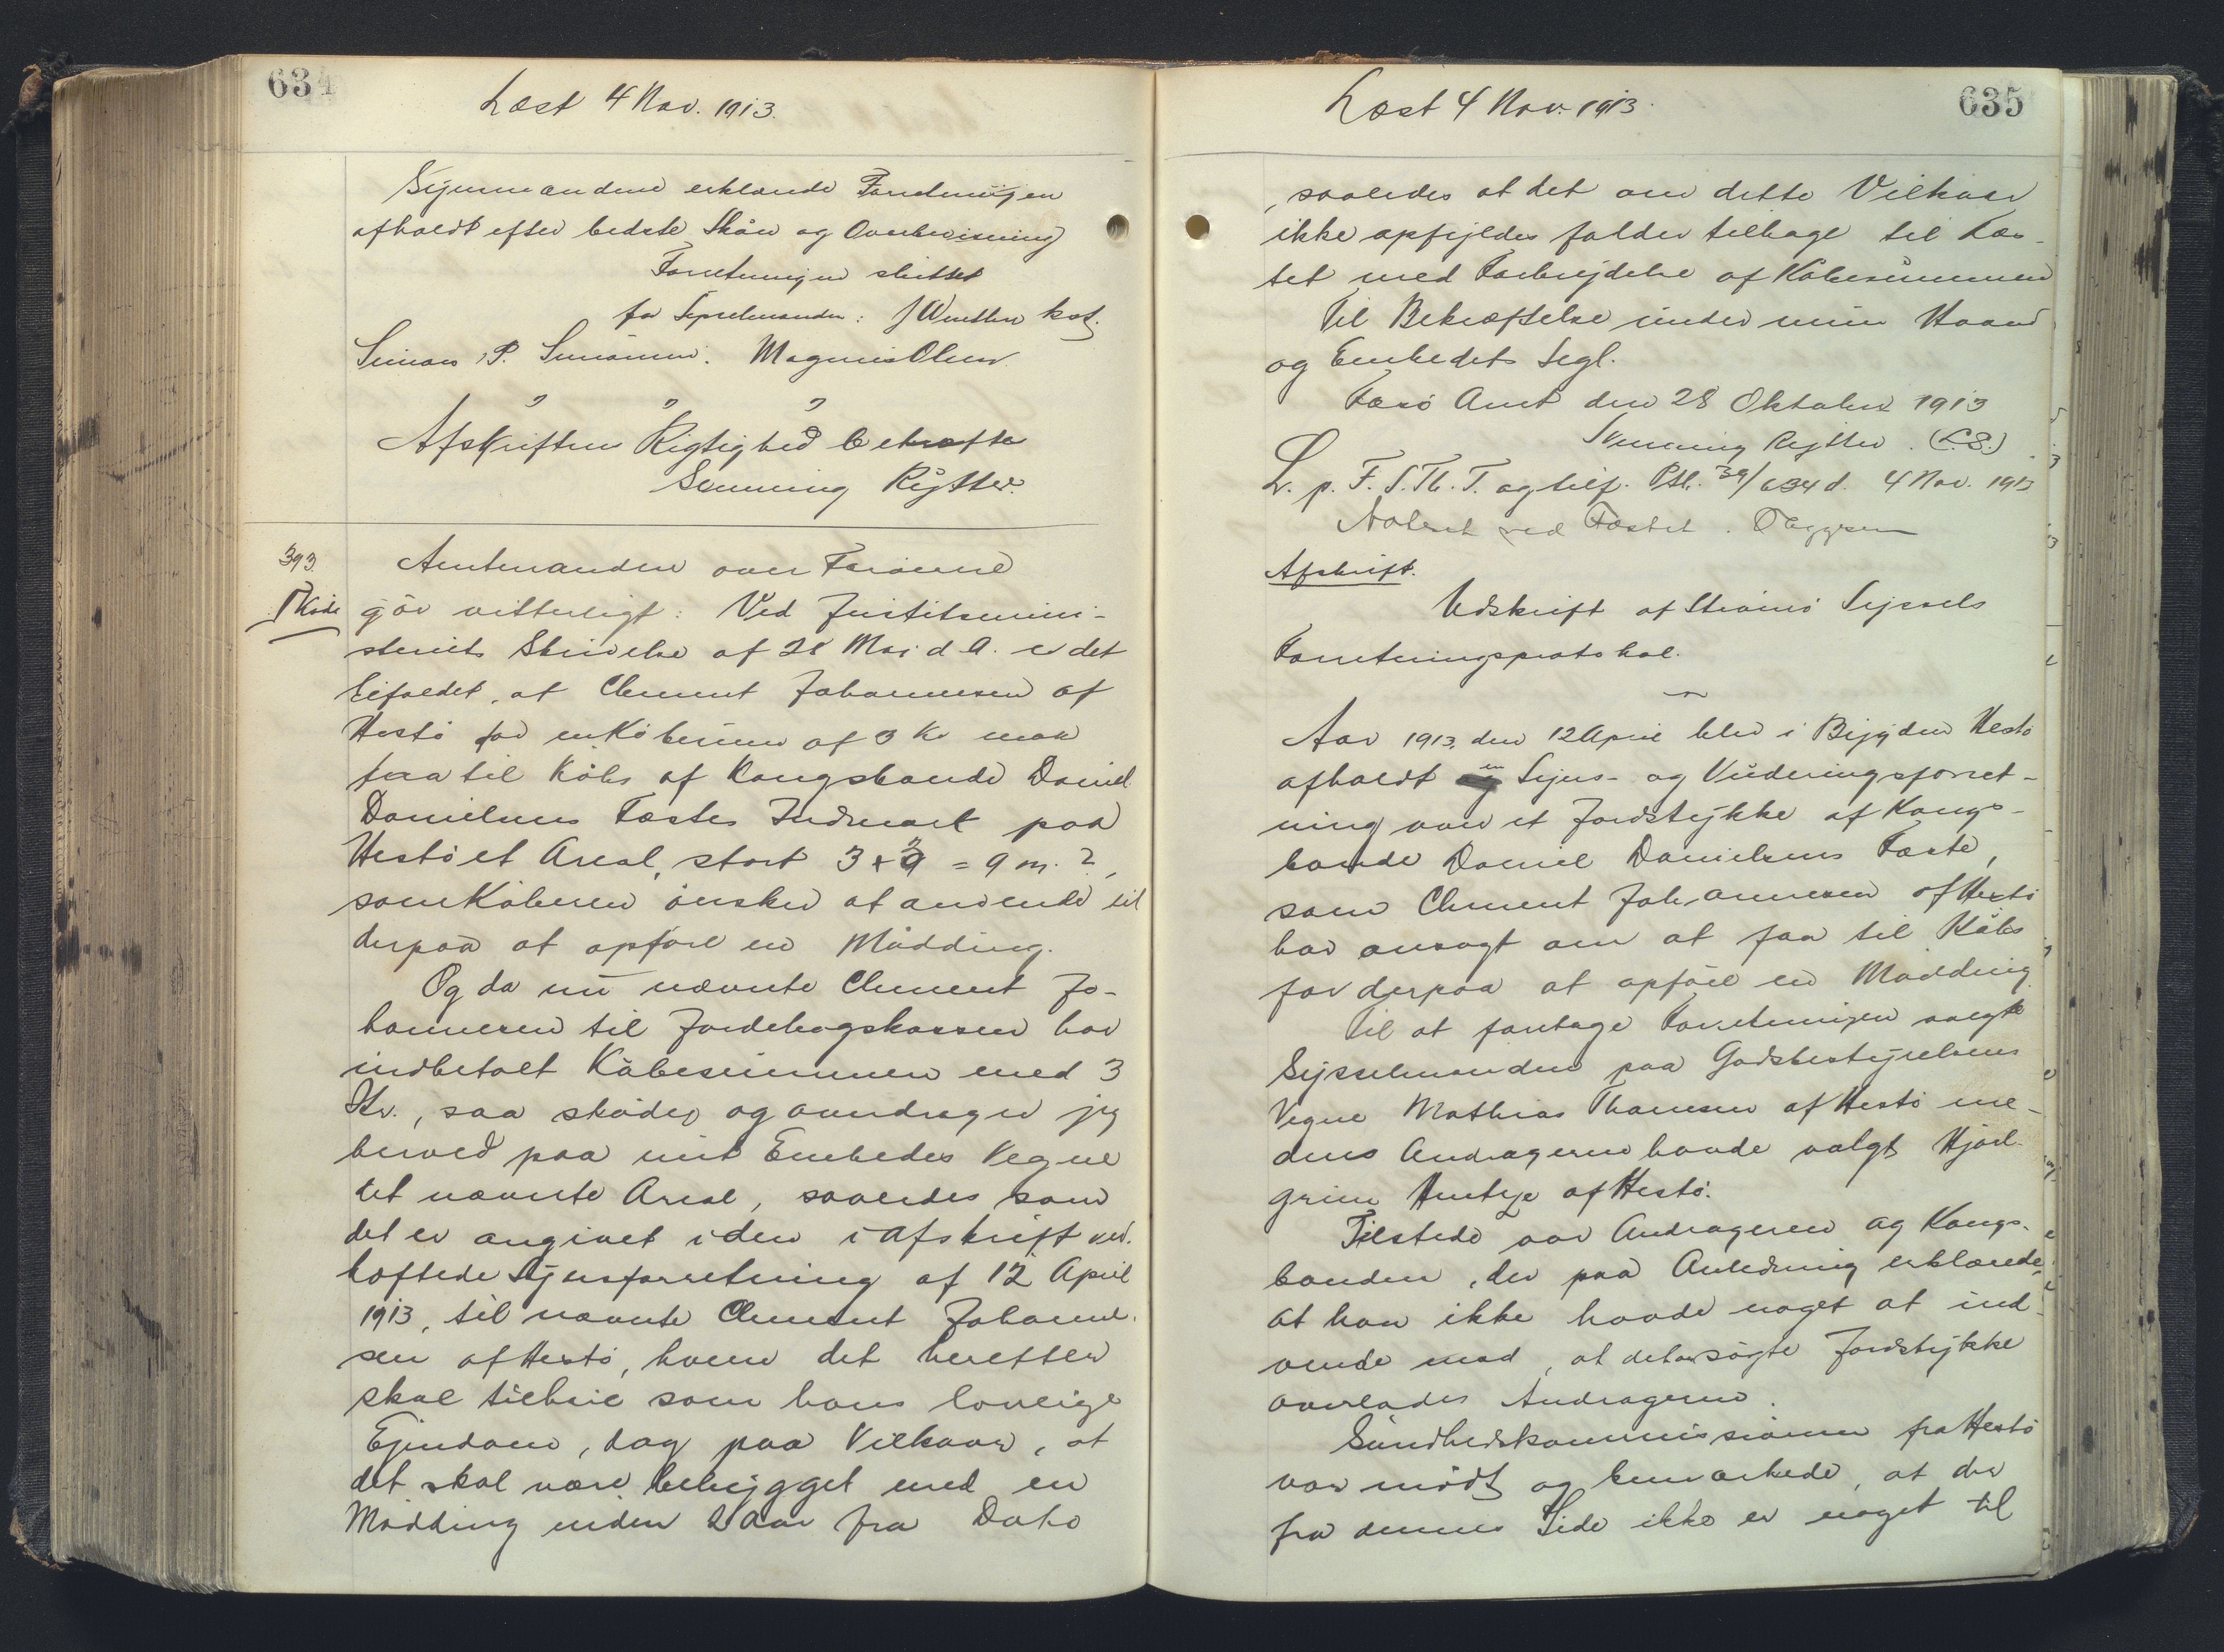 634
Læst 4 Nov. 1913.
Synsmændene erklærede Forretningen
afholdt efter bedste Skön og Overbevisning
Forretningen sluttet
for Sysselmanden: J Winther kst.
Simon P. Simonsen. Magnus Olsen
" " "
Afskriftens Rigtighed bekræftes
Svenning Rytter.
393.
Skøde
Amtmanden over Færöerne
gör vitterligt: Ved Justitsmini-
steriets Skrivelse af 28 Maj d. A. er det
bifaldet, at Clement Johannesen af
Hestö for en Köbesum af 3 Kr maa
faa til Köbs af Kongsbonde Daniel
Danielsens Fæstes Indmark paa
Hestö et Areal, stort 3 + 3 = 9 m. 2,
som Köberen önsker at anvende til
derpaa at opföre en Mödding.
Og da nu nævnte Clement Jo-
hannesen til Jordebogskassen har
indbetalt Köbesummen med 3
Kr., saa sköder og overdrager jeg
herved paa mit Embedes Vegne
det nævnte Areal, saaledes som
det er angivet i den i Afskrift ved-
hæftede Synsforretning af 12 April
1913, til nævnte Clement Johanne-
sen af Hestö, hvem det herefter
skal tilhöre som hans lovlige
Ejendom, dog paa Vilkaar, at
det skal være bebygget med en
Mödding inden 2 Aar fra Dato
635
Læst 4 Nov. 1913.
, saaledes at det om dette Vilkaar
ikke opfyldes falder tilbage til Fæ-
stet med Forbrydelse af Köbesummen
Til Bekræftelse under min Haand
og Embedets Segl.
Færö Amt den 28 Oktober 1913
Svenning Rytter. (L.S.)
L. p. F. S. Th. T. og tilf. Ptl. 39/634 d. 4 Nov. 1913
Noteret ved Fæstet.
Afskrift.
Udskrift af Strömö Syssels
Forretningsprotokol.
Aar 1913, den 12 April blev i Bygden Hestö
afholdt en Syns- og Vurderingsforret-
ning over et Jordstykke af Kongs-
bonde Daniel Danielsens Fæste,
som Clement Johannesen af Hestö
har ansögt om at faa til Köbs
for derpaa at opföre en Mödding
Til at foretage Forretningen valgte
Sysselmanden paa Godsbestyrelsens
Vegne Mathias Thomsen af Hestö me-
dens Andrageren havde valgt Hjal-
grim Hentze af Hestö.
Tilstede var Andrageren og Kongs-
bonden, der paa Anledning erklærede,
at han ikke havde noget at ind-
vende mod, at det ansögte Jordstykke
overlades Andrageren.
Sundhedskommissionen fra Hestö
var mödt og bemærkede, at der
fra dennes Side ikke er noget til